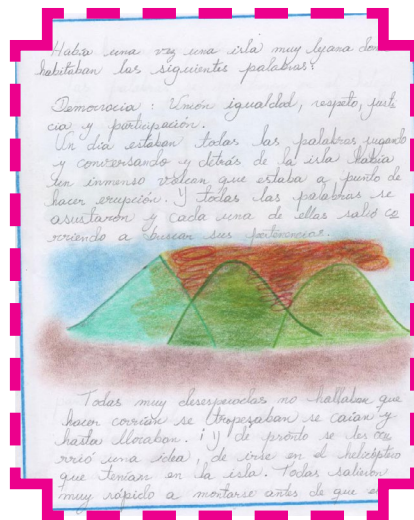 Había una vez una isla muy lejana don
habitaban las siguientes palabras:
Democracia: Unión igualdad, respeto, justi
cia y participación.
Un día estaban todas las palabras jugando
y conversando y detrás de la isla había
un inmenso volcán que estaba a punto de
hacer erupción. Y todas las palabras se
asustaron y cada una de ellas salió co
rriendo a buscar sus pertenencias.
Todas muy desesperadas no hallaban que
hacer corrían se tropezaban se caían y
hasta lloraban. ¡y de pronto se les ocu
rrió una idea, de irse en el helicóptero
que tenían en la isla. Todas salieron
muy rápido a montarse antes de que e